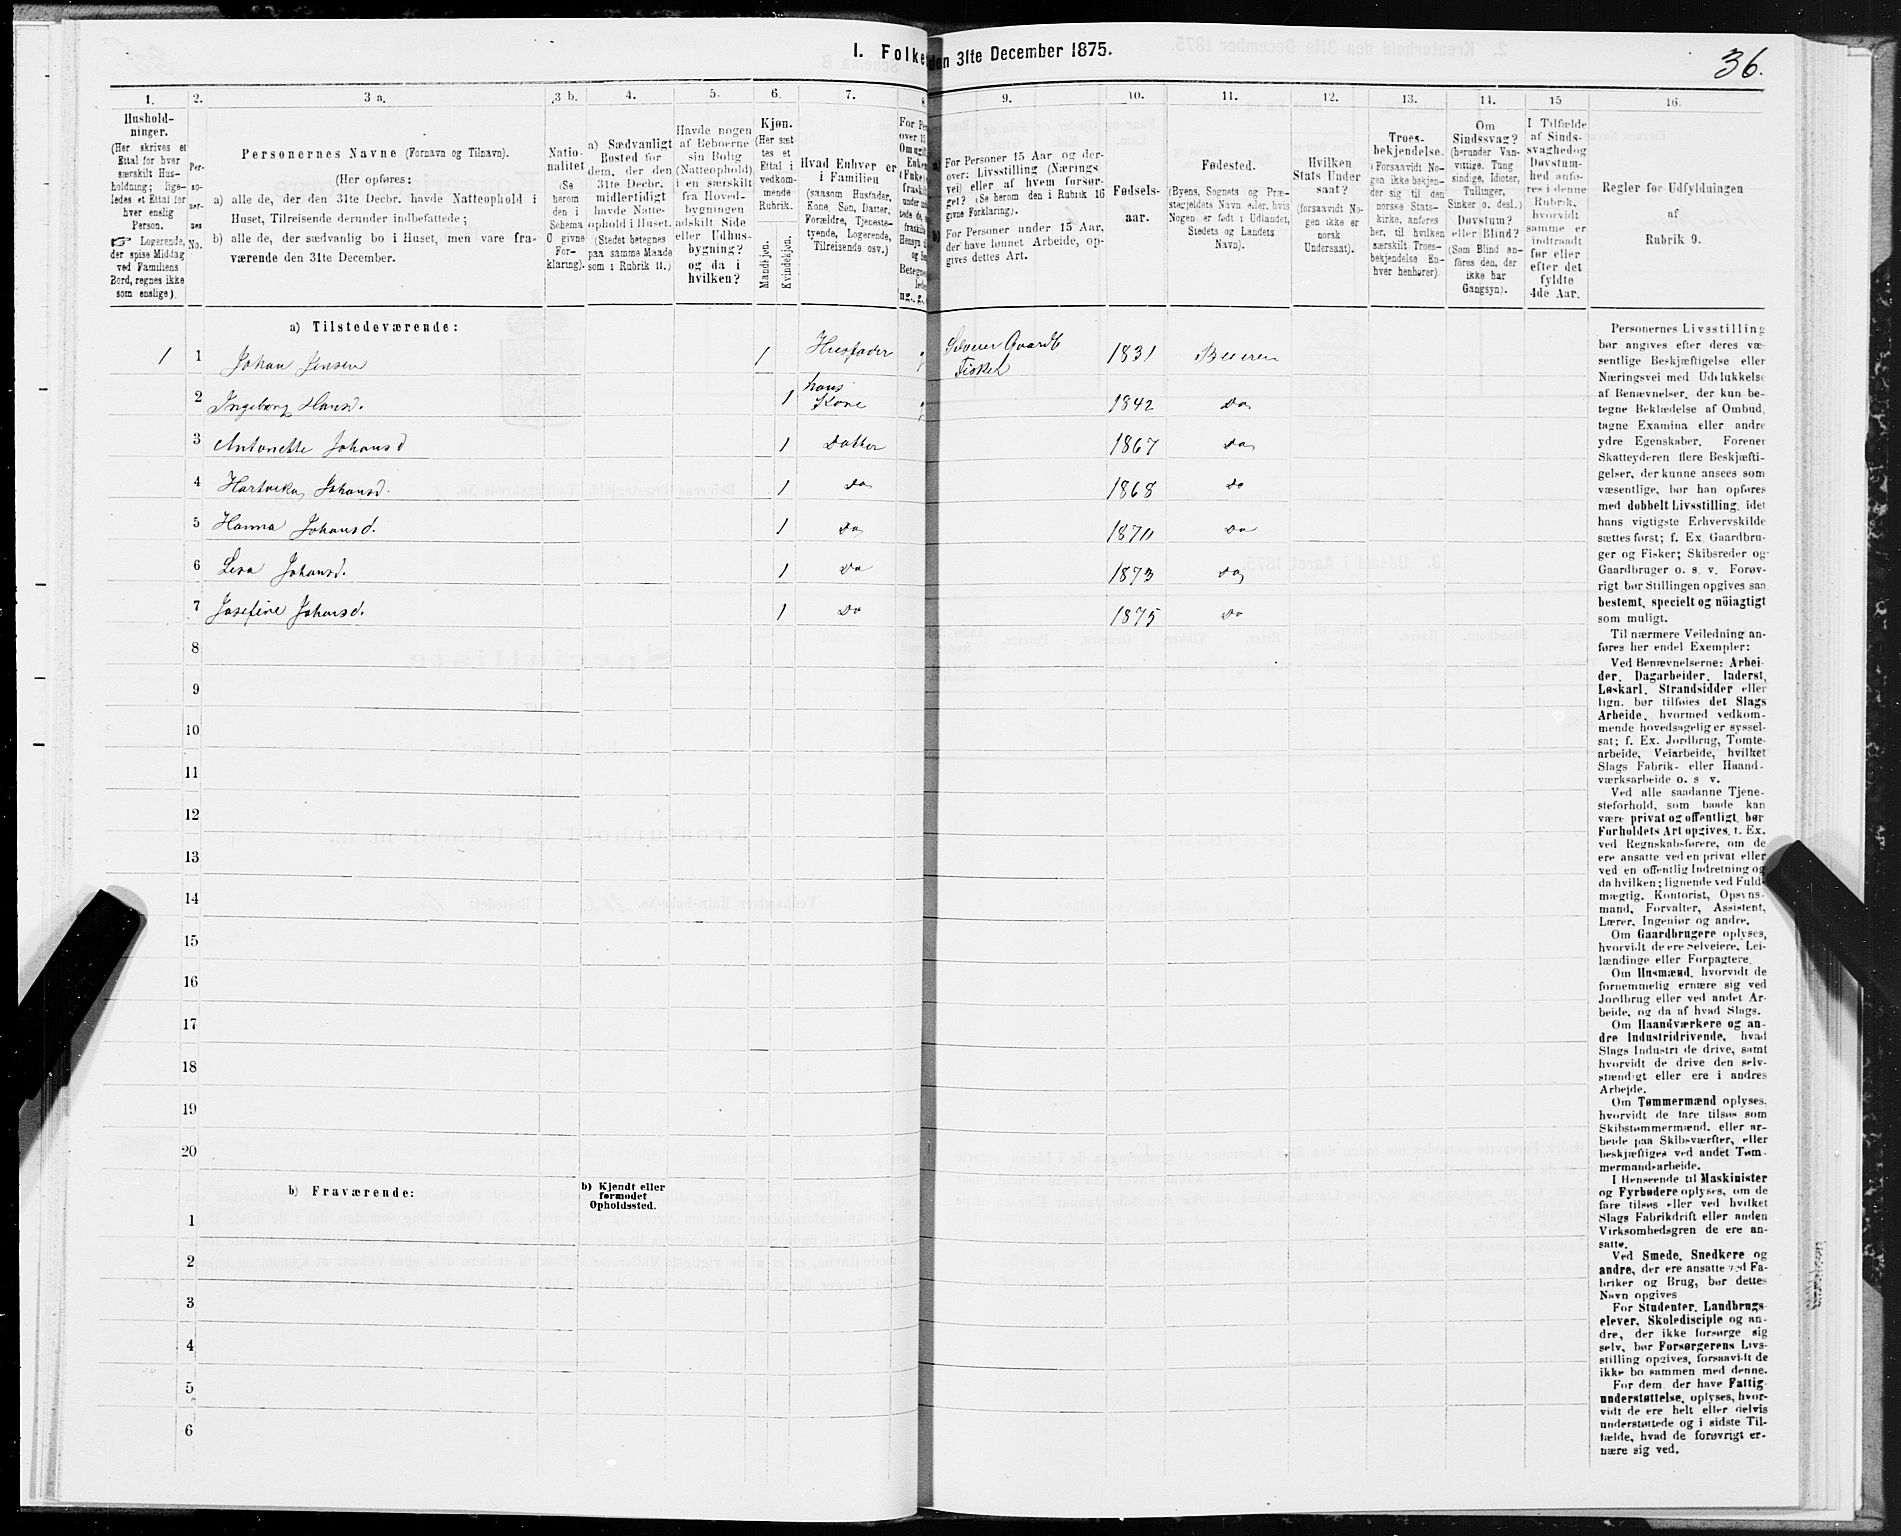 1. Folke
den 31te December 1875.
36.
1.
2.
3 a.
3 b.
4.
5.
6.
7.
8.
9.
10.
11.
12.
13.
14.
15
16.
Hushold-
ninger.
(Her skrives et
Ettal for hver
særskilt Hus-
holdning; lige-
ledes et Ettal for
hver enslig
Person.
☞ Logerende,
der spise Middag
ved Familiens
Bord, regnes ikke
som enslige).
Per-
so-
ner-
nes
No.
Personernes Navne (Fornavn og Tilnavn).
(Her opføres:
a) alle de, der den 31te Decbr. havde Natteophold i
Huset, Tilreisende derunder indbefattede;
b) alle de, der sædvanlig bo i Huset, men vare fra-
værende den 31te December.
Natio-
nalitet
(Se
herom
den i
Schema
O givne
For-
klaring).
a) Sædvanligt
Bosted for
dem, der den
31te Decbr.
midlertidigt
havde Natte-
ophold i Huset.
(Stedet betegnes
paa samme Maade
som i Rubrik 11.)
Havde nogen
af Beboerne
sin Bolig
(Natteophold)
i en særskilt
fra Hoved-
bygningen
adskilt Side
eller Udhus-
bygning?
og da i
hvilken?
Kjøn.
(Her sæt
tes et
Ettal i
vedkom-
mende
Rubrik.
Mandkjøn.
Kvindekjøn.
Hvad Enhver er
i Familien
(saasom Husfader,
Kone, Søn, Datter,
Forældre, Tjeneste-
tyende, Logerende,
Tilreisende osv.)
For Personer 15 Aar og der-
over: Livsstilling (Nærings
vei) eller af hvem forsør-
get? (Se herom den i Rubrik 16
givne Forklaring).
For Personer under 15 Aar,
der have lønnet Arbeide, op-
gives dettes Art.
Fødsels-
aar.
Fødested.
(Byens, Sognets og Præ-
stegjeldets Navn eller, hvis
Nogen er født i Udlandet,
Stedets og Landets
Navn).
Hvilken
Stats Under
saat?
(forsaavidt No-
gen ikke er
norsk
Undersaat).
Troes-
bekjendelse.
(Forsaavidt No-
gen ikke bekjen-
der sig til den
norske Stats-
kirke, anføres
her, til hvilken
særskilt Troes-
bekjendelse En-
hver henhører).
Om
Sindssvag?
(herunder Van-
vittige, Tung
sindige, Idioter,
Tullinger,
Sinker o. desl.)
Døvstum?
eller Blind?
(Som Blind an-
føres den, der
ikke har
Gangsyn).
I Tilfælde
af Sinds-
svaghed og
Døvstum-
hed anfø-
res i denne
Rubrik,
hvorvidt
samme er
indtraadt
før eller
efter det
fyldte
4de Aar.
Regler for Udfyldningen
af
Rubrik 9.
a) Tilstedeværende:
1 1 Johan Jensen 1 Husfader g Selveier Gaardb Fisker 1831 Beieren
2 Ingeborg Hansd. 1 hans Kone g 1842 Do
3 Antonette Johansd 1 Datter 1867 Do
4 Hartvika Johansd. 1 Do 1868 Do
5 Hanna Johansd. 1 Do 1870 Do
6 Lesa Johansd. 1 Do 1873 Do
7 Josefine Johansd. 1 Do 1875 Do
8
9
10
11
12
13
14
15
16
17
18
19
20
b) Fraværende:
b) Kjendt eller
formodet
Opholdssted.
1
2
3
4
5
6
Personernes Livsstilling
bør angives efter deres væ-
sentlige Beskjæftigelse eller
Næringsvei med Udelukkelse
af Benævnelser, der kun be-
tegne Beklædelse af Ombud,
tagne Examina eller andre
ydre Egenskaber. Forener
Skatteyderen flere Beskjæfti-
gelser, der kunne ansees som
væsentlige, bør han opføres
med dobbelt Livsstilling, idet
hans vigtigste Erhvervskilde
sættes først; f. Ex. Gaardbru-
ger og Fisker; Skibsreder og
Gaardbruger o. s. v. Forøv-
rigt bør Stillingen opgives saa
bestemt, specielt og nöiagtigt
som muligt.
Til nærmere Veiledning an-
føres her endel Exempler:
Ved Benævnelserne: Arbei-
der, Dagarbeider, Inderst,
Løskarl, Strandsidder eller
lign. bør tilføies det Slags
Arbeide, hvormed vedkom-
mende hovedsagelig er syssel-
sat; f. Ex. Jordbrug, Tomte-
arbeide, Veiarbeide, hvilket
Slags Fabrik- eller Haand-
værksarbeide o. s v.
Ved alle saadanne Tjene-
steforhold, som baade kan
være privat og offentligt, bør
Forholdets Art opgives, f. Ex.
ved Regnskabsførere, om de
ere ansatte ved en privat eller
ved en offentlig Indretning og
da hvilken; lignende ved Fuld-
mægtig, Kontorist, Opsyns-
mand, Forvalter, Assistent,
Lærer, Ingeniør og andre.
Om Gaardbrugere oplyses,
hvorvidt de ere Selveiere, Lei-
lændinge eller Forpagtere.
Om Husmænd, hvorvidt de
fornemmelig ernære sig ved
Jordbrug eller ved andet Ar-
beide, og da af hvad Slags.
Om Haandværkere og an-
dre Industridrivende, hvad
Slags Industri de drive, samt
hvorvidt de drive den selv-
stændigt eller ere i andres
Arbejde.
Om Tømmermænd oplyses,
hvorvidt de fare tilsøs som
Skibstømmermænd, eller ar-
beide paa Skibsværfter, eller
beskjæftiges ved andet Tøm-
mermandsarbeide.
I Henseende til Maskinister
og Fyrbødere oplyses, om de
fare tilsøs eller ved hvilket
Slags Fabrikdrift eller anden
Virksomhedsgren de ere an-
satte.
Ved Smede, Snedkere og
andre, der ere ansatte ved Fa-
briker og Brug, bør dettes
Navn opgives
For Studenter, Landbrugs-
elever, Skoledisciple og an-
dre, der ikke forsørge sig
selv, bør Forsørgerens Livs-
stilling opgives, forsaavidt de
ikke bo sammen med denne.
For dem, der have Fattig-
understøttelse, oplyses, hvor-
vidt de ere helt eller delvis
understøttede og i sidste Til-
fælde, hvad de forøvrigt er-
nære sig ved.